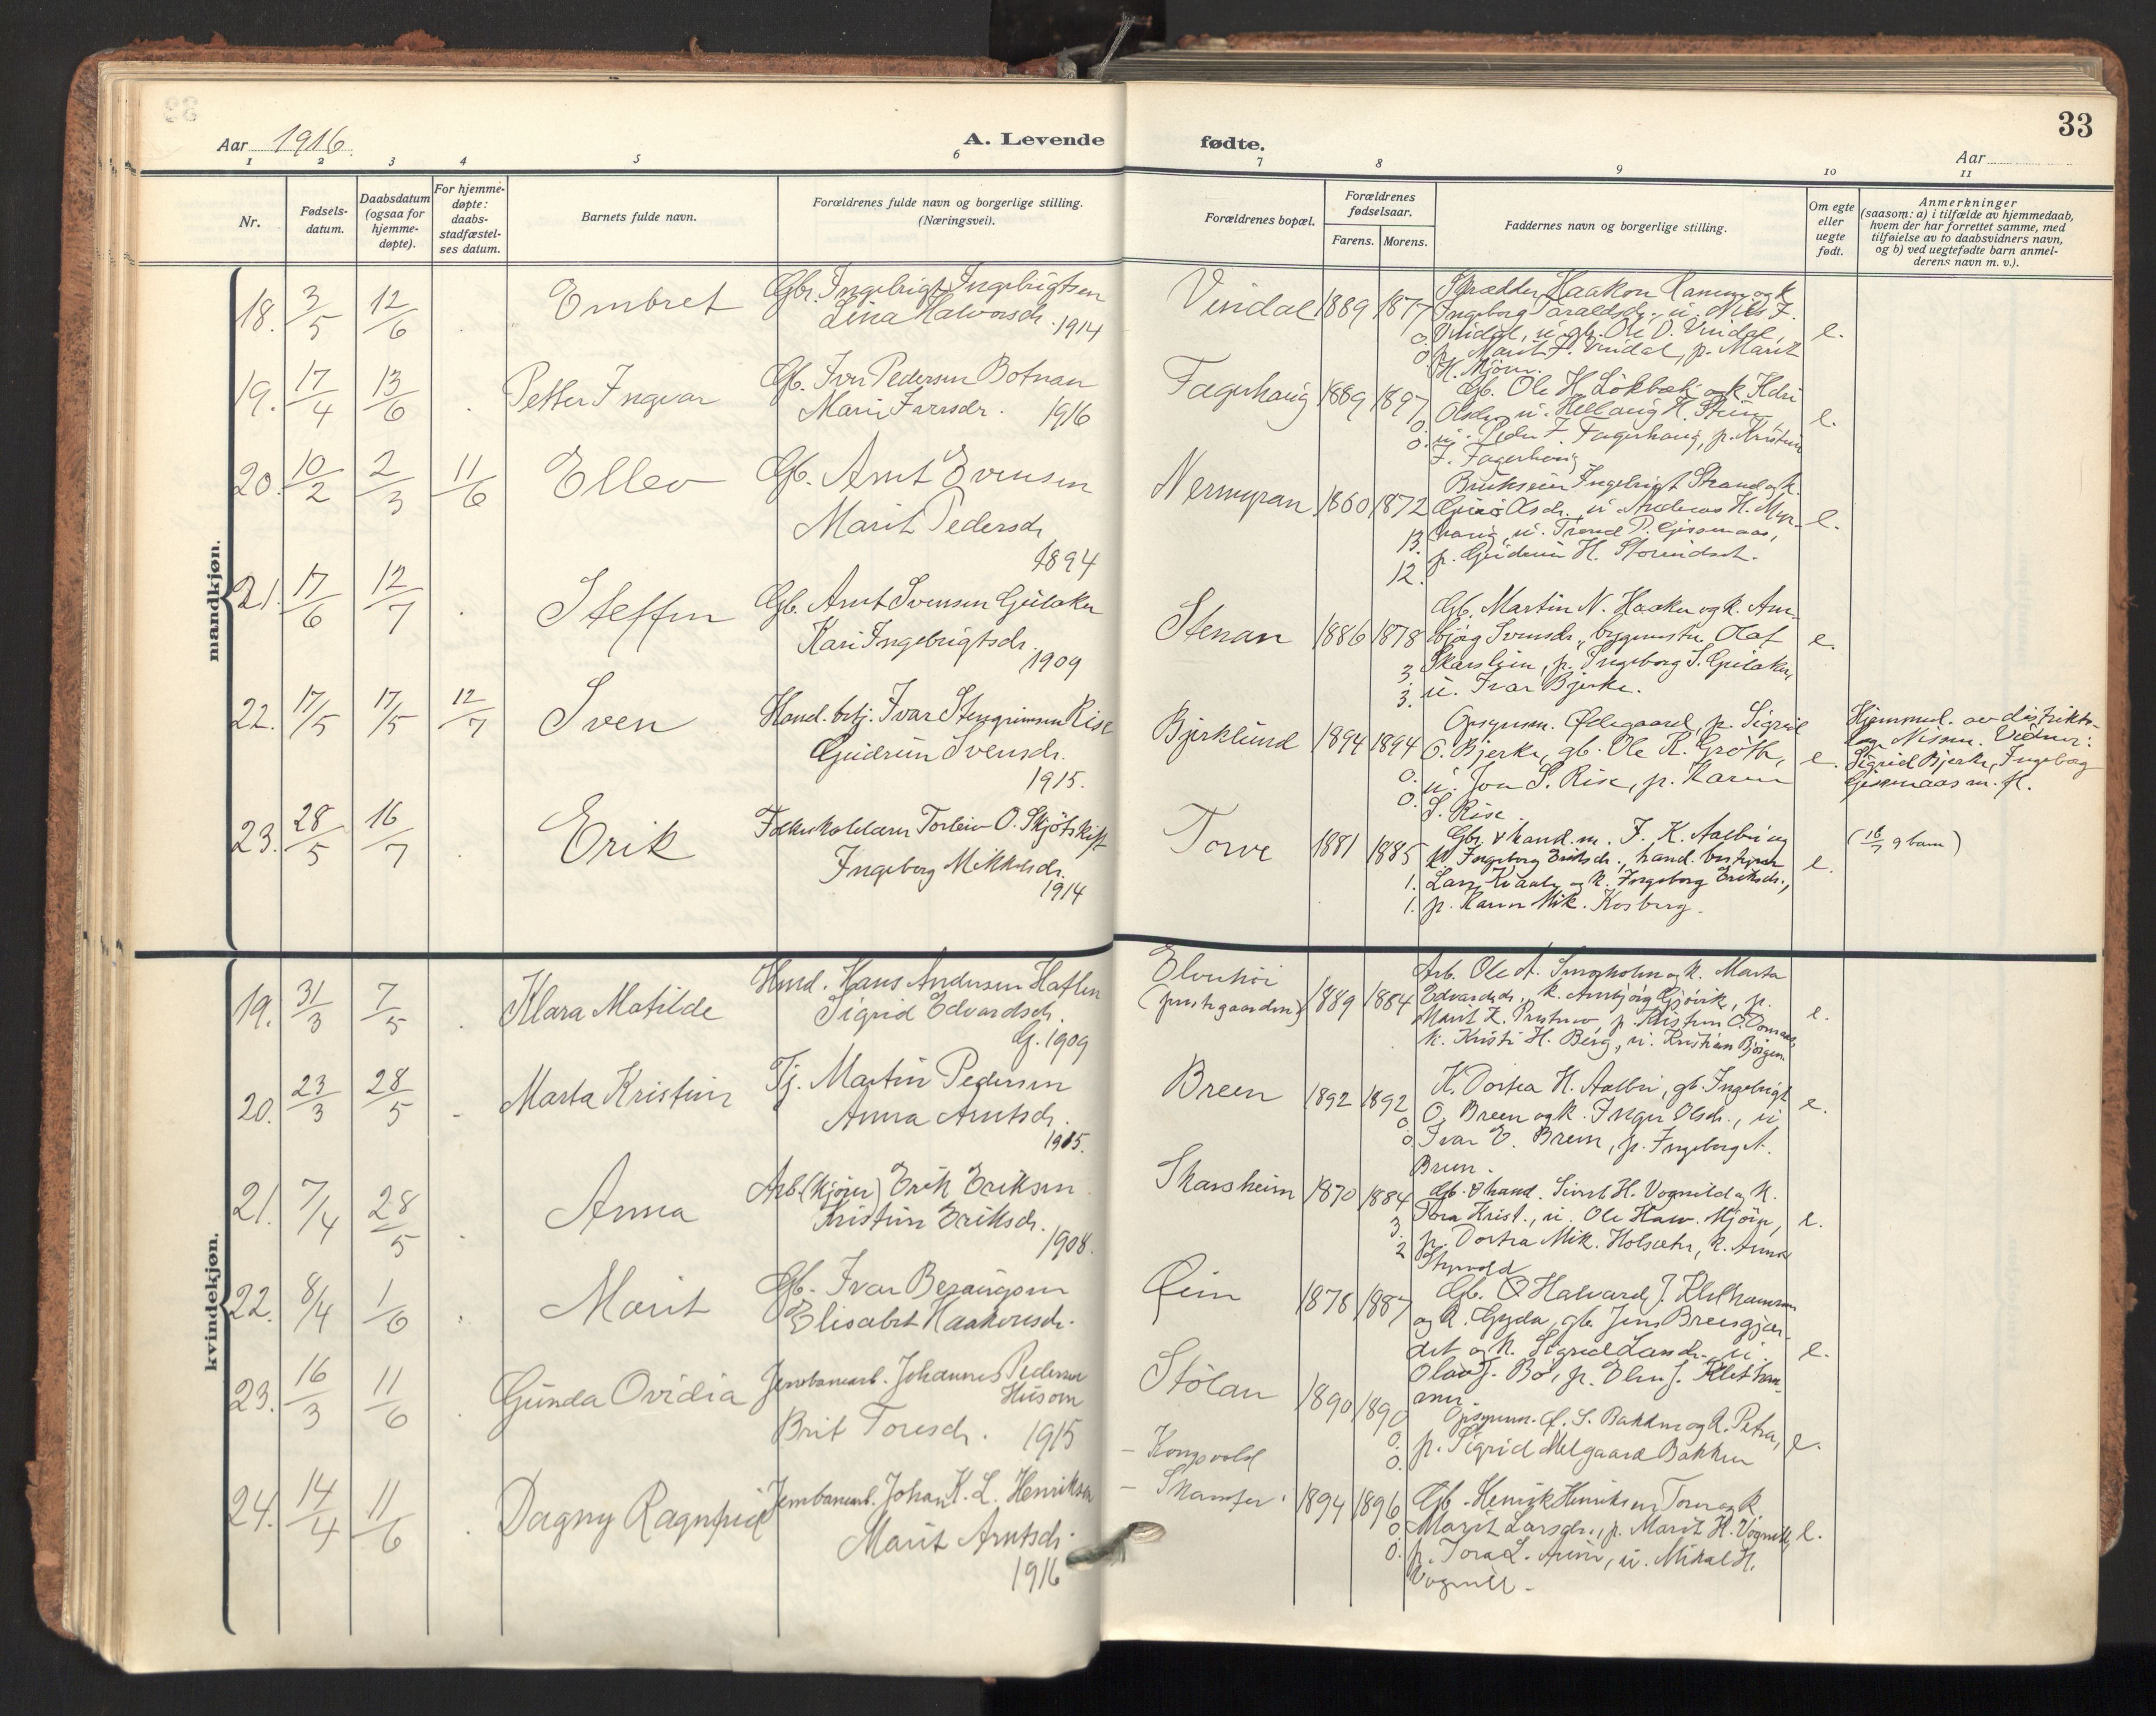 33
Aar 1916.
A. Levende
fødte.
Aar
1 2 3 4 5 6 7 8 9 10 11
Nr.
Fødsels-
datum.
Daabsdatum
(ogsaa for
hjemme-
døpte).
For hjemme-
døpte:
daabs-
stadfæstel-
ses datum.
Barnets fulde navn.
Forældrenes fulde navn og borgerlige stilling.
(Næringsvei).
Forældrenes bopæl.
Forældrenes
fødselsaar.
Farens. Morens.
Faddernes navn og borgerlige stilling.
Om egte
eller
uegte
født.
Anmerkninger
(saasom: a) i tilfælde av hjemmedaab,
hvem der har forrettet samme, med
tilføielse av to daabsvidners navn,
og b) ved uegtefødte barn anmel-
derens navn m. v.).
mandkjøn.
18. 3/5 12/6 . Embret
Gbr. Ingebrigt Ingebrigtsen
Lina Halvorsdr. 1914
Vindal 1889 1877
0.
0.
Skrædder Haakon
Ingeborg Haraldsdr., u. Nils I.
Vindal, u. gb. Ole O. Vindal,
p. Marit I. Vindal, p. Marit
H. Mjøen.
e.
19. 17/4 13/6 . Petter Ingvar
Gb. Iver Pedersen Botnan
Marie Iversdr. 1916
Fagerhaug 1889 1897
0.
0.
Gb. Ole H. Løkbæk og k. Kari
Olsdr., u. Hellaug H. Stuen,
u. Peder I. Fagerhaug, p. Kristine
I. Fagerhaug
e.
20. 10/2 2/3 11/6 Ellev
Gb. Arnt Evensen
Marit Pedersdr.
1894
Nermyran 1860 1872
13.
12.
Brukseier Ingebrigt Strand og k.
Guri Olsdr., u. Andreas H. Myr-
haug, u. Trond P. Gisnaas,
p. Gudrun H. Storvidset.
e.
21. 17/6 12/7 . Steffen
Gb. Arnt Svensen Gulaker
Kari Ingebrigtsdr.
1909
Stenan 1886 1878
3.
3.
Gb. Martin N. Haaker og k. Am-
bjørg Svensdr., bygmester Olaf
Skarsheim, p. Ingeborg S. Gulaker,
u. Ivar Bjerke.
e.
22. 17/5 17/5 12/7 Sven
Hand. betj. Ivar Stengrimsen Rise
Gudrun Svensdr.
1915.
Bjerklund 1894 1894
0.
0.
Opsynsm. Ødegaard, p. Sigrid
O. Bjerke, gb. Ole K. Grøtte,
u. Jon S. Rise, p. Karen
S. Rise.
e.
Hjemmed. av distrikts-
læge Nissen. Vidner:
Sigrid Bjerke, Ingeborg
Gissinaas m. fl.
23. 28/5 16/7 . Erik
Folkeskolelærer Torleiv O. Skjøtskift
Ingeborg Mikkelsdr.
1914
Torve 1881 1885
1.
1.
Gbr. & hand. m. I. K. Aalbu og
k. Ingeborg Eriksdr., hand. bestyrer
Lars Kvaale og k. Ingeborg Eriksdr.,
p. Karen Mik. Kosberg.
e.
(16/7 9 barn)
kvindekjøn.
19. 31/3 7/5 . Klara Matilde
Hmd. Hans Andersen Haften
Sigrid Edvardsdr.
G. 1909
Elvehøi
(prestegaarden) 1889 1884
Arb. Ole A. Smogholm og k. Marta
Edvardsdr., k. Ambjørg Gjøvik, p.
Marit K. Prestmo, p. Kristine O. Donaas,
k. Kristi H. Berg, u. Kristian Bjørgen
e.
20. 23/3 28/5 - Marta Kristine
Tj. Martin Pedersen
Anna Arntsdr.
1915.
Breen 1892 1892
0
0
K. Dortea H. Aalbu, gb. Ingebrigt
O. Breen og k. Inger Olsdr., u.
Ivar E. Breen, p. Ingeborg A.
Breen.
e.
21. 7/4 28/5 . Anna
Arb. (kjører) Erik Eriksen
Kristine Eriksdr.
1908.
Skarsheim 1870 1884
3.
2
Gb. & hand. Sivert H. Vognild og k.
Tora Krist., u. Ole Halv. Mjøen,
p. Dortea Mik. Holsæter, k. Anne
Styrvold
e.
22. 8/4 1/6 . Marit
Gb. Ivar Besaugsen
Elisabet Haakensdr.
Øien 1878 1887
Gb. O Halvard J. Klethammer
og k. Gyda, gb. Jens Breesgjær-
det og k. Sigrid Larsdr., u.
Olav J. Bø, p. Elen J. Kletham-
mer.
e.
23. 16/3 11/6 . Gunda Ovidia
Jernbanearb. Johannes Pedersen
Husom
Brit Toresdr. 1915
Stølan
- Kongsvold 1890 1890
0.
0.
Opsynsm. O. S. Bakken og k. Petra,
p. Sigrid Melgaard Bakken
e.
24. 14/4 11/6 . Dagny Ragnfrid
Jernbanearb. Johan K. L. Henriksen
Marit Arntsdr.
1916
- Skamfer 1894 1896
0.
0.
Gb. Henrik Henriksen Torve og k.
Marit Larsdr., p. Marit H. Vognild,
p. Tora L. Aune, u. Mikal H.
Vognild.
e.